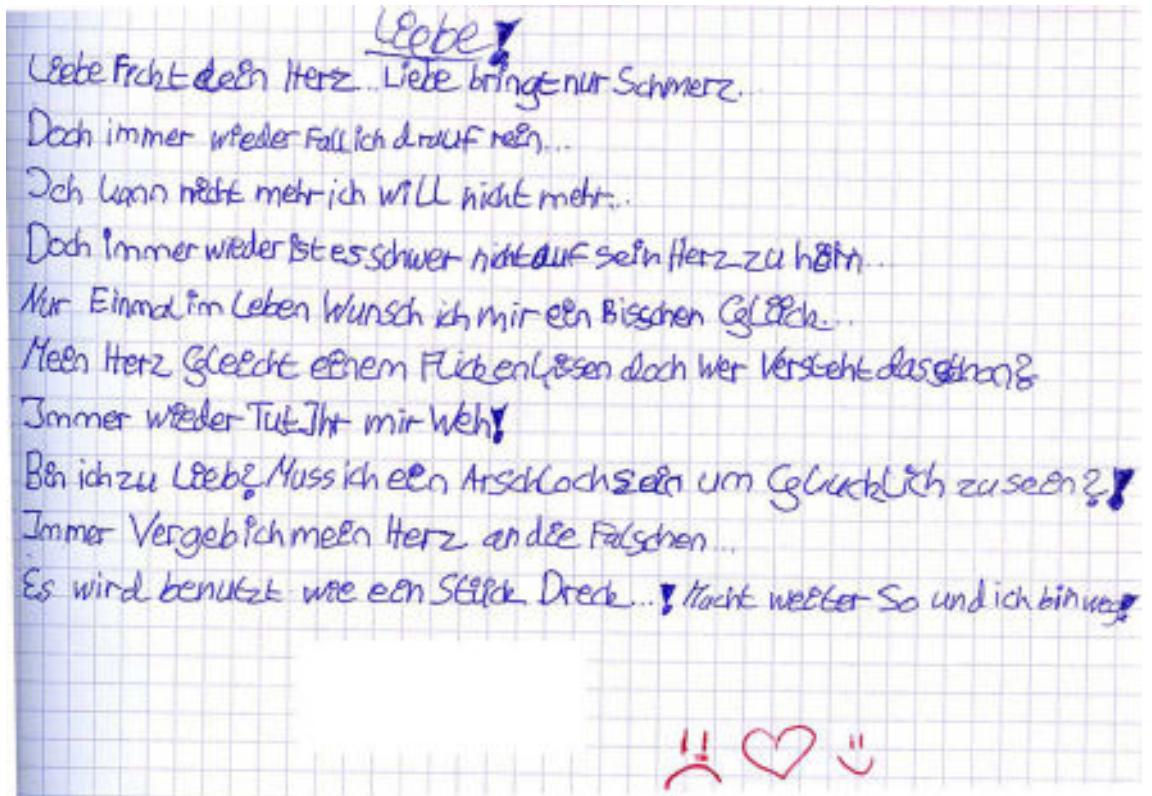 Liebe!
Liebe Ficht dein Herz... Liebe bringt nur Schmerz...
Doch immer wieder Fall ich drauf rein...
Ich kann nicht mehr ich will nicht mehr...
Doch immer wieder ist es schwer nicht auf sein Herz zu hörn...
Nur Einmal im Leben Wünsch ich mir ein Bisschen Glück...
Mein Herz Gleicht einem Flickenkissen doch wer Versteht das schon?
Immer wieder Tut Ihr mir Weh!
Bin ich zu Lieb? Muss ich ein Arschloch sein um Glücklich zu sein?!
Immer Vergeb ich mein Herz an die Falschen...
Es wird benutzt wie ein Stück Dreck...! Macht weiter So und ich bin weg!